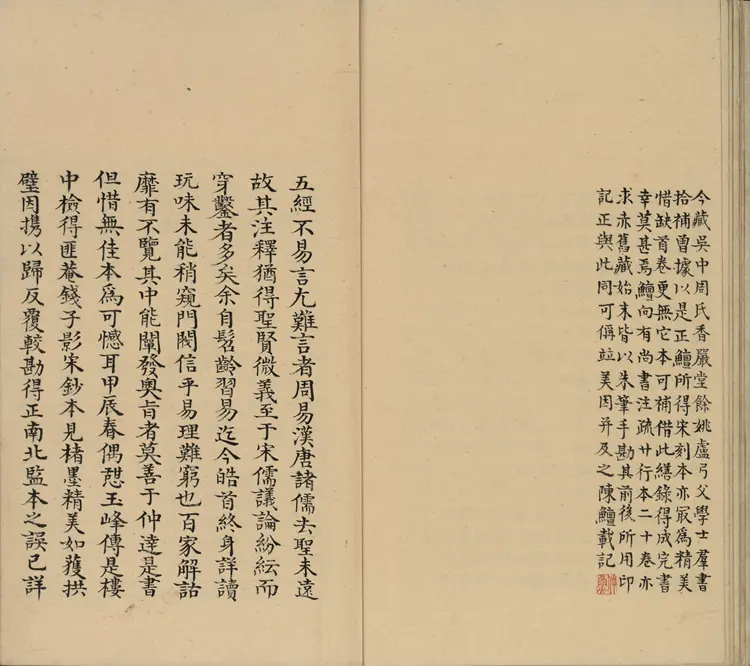 今藏吳中周氏香嚴堂餘姚盧弓父學士羣書
拾補曾據以是正鱣所得宋刻本亦冣爲精美
惜缺首卷更無它本可補借此繕錄得成完書
幸莫甚焉鱣向有尚書注疏廿行本二十卷亦
求赤舊藏始末皆以朱筆手勘其前後所用印
記正與此同可偁竝美因并及之陳鱣載記
五經不易言尤難言者周易漢唐諸儒去聖未遠
故其注釋猶得聖賢微義至于宋儒議論紛紜而
穿鑿者多矣余自髫齡習易迄今皓首終身詳讀
玩味未能稍窺門閾信乎易理難窮也百家解詁
靡有不覽其中能闡發奧旨者莫善于仲達是書
但惜無佳本爲可憾耳甲辰春偶憇玉峰傳是樓
中檢得匪菴錢子影宋鈔本見楮墨精美如獲拱
璧因携以歸反覆較勘得正南北監本之誤已詳